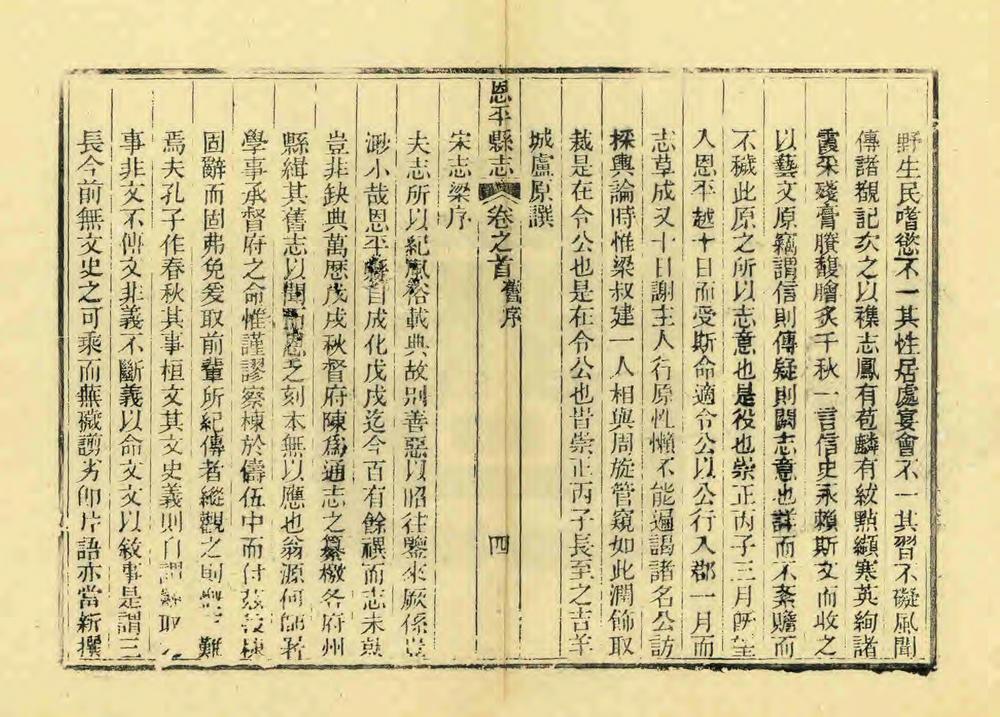 野生民嗜慾不一其性居處宴會不一其習不礙風聞
傳諸觀記次之以襍志鳳有苞麟有紋點纈寒英絢諸
霞采殘膏賸馥膾炙千秋一言信史永賴斯文而收之
以藝文原竊謂信則傳疑則闕志意也詳而不紊贍而
不穢此原之所以志意也是役也崇正丙子三月旣望
入恩平越十日而受斯命適令公以公行入郡一月而
志草成又十日謝主人行原性懶不能遍謁諸名公訪
採輿論時惟梁叔建一人相與周旋管窺如此潤飾取
裁是在令公也是在令公也旹崇正丙子長至之吉羊
城盧原譔
恩平縣志 卷之首 舊序 四
宋志梁序
夫志所以紀風俗載典故別善惡以昭往鑒來厥係豈
渺小哉恩平縣自成化戊戌迄今百有餘禩而志未
豈非缺典萬歷戊戌秋督府陳爲通志之纂檄各府州
縣緝其舊志以聞而恩乏刻本無以應也翁源何師
學事承督府之命惟謹謬察棟於儔伍中而付
固辭而固弗免爰取前輩所紀傳者縱觀之則 難
焉夫孔子作春秋其事桓文其文史義則自謂 取
事非文不傳文非義不斷義以命文文以敘事是謂三
長今前無文史之可乘而蕪穢謭劣卽片語亦當新撰